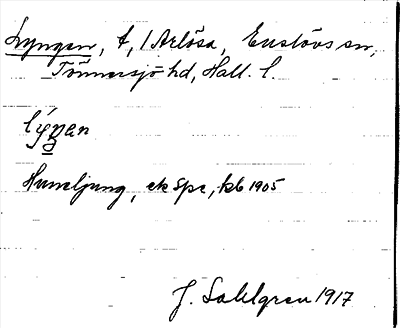 Lyngen, t, / Arlösa, Enslövs sn,
Tönnersjö hd, Hall. l.
lýŋen
Humeljung, ek spr, kb 1905
J. Sahlgren 1917